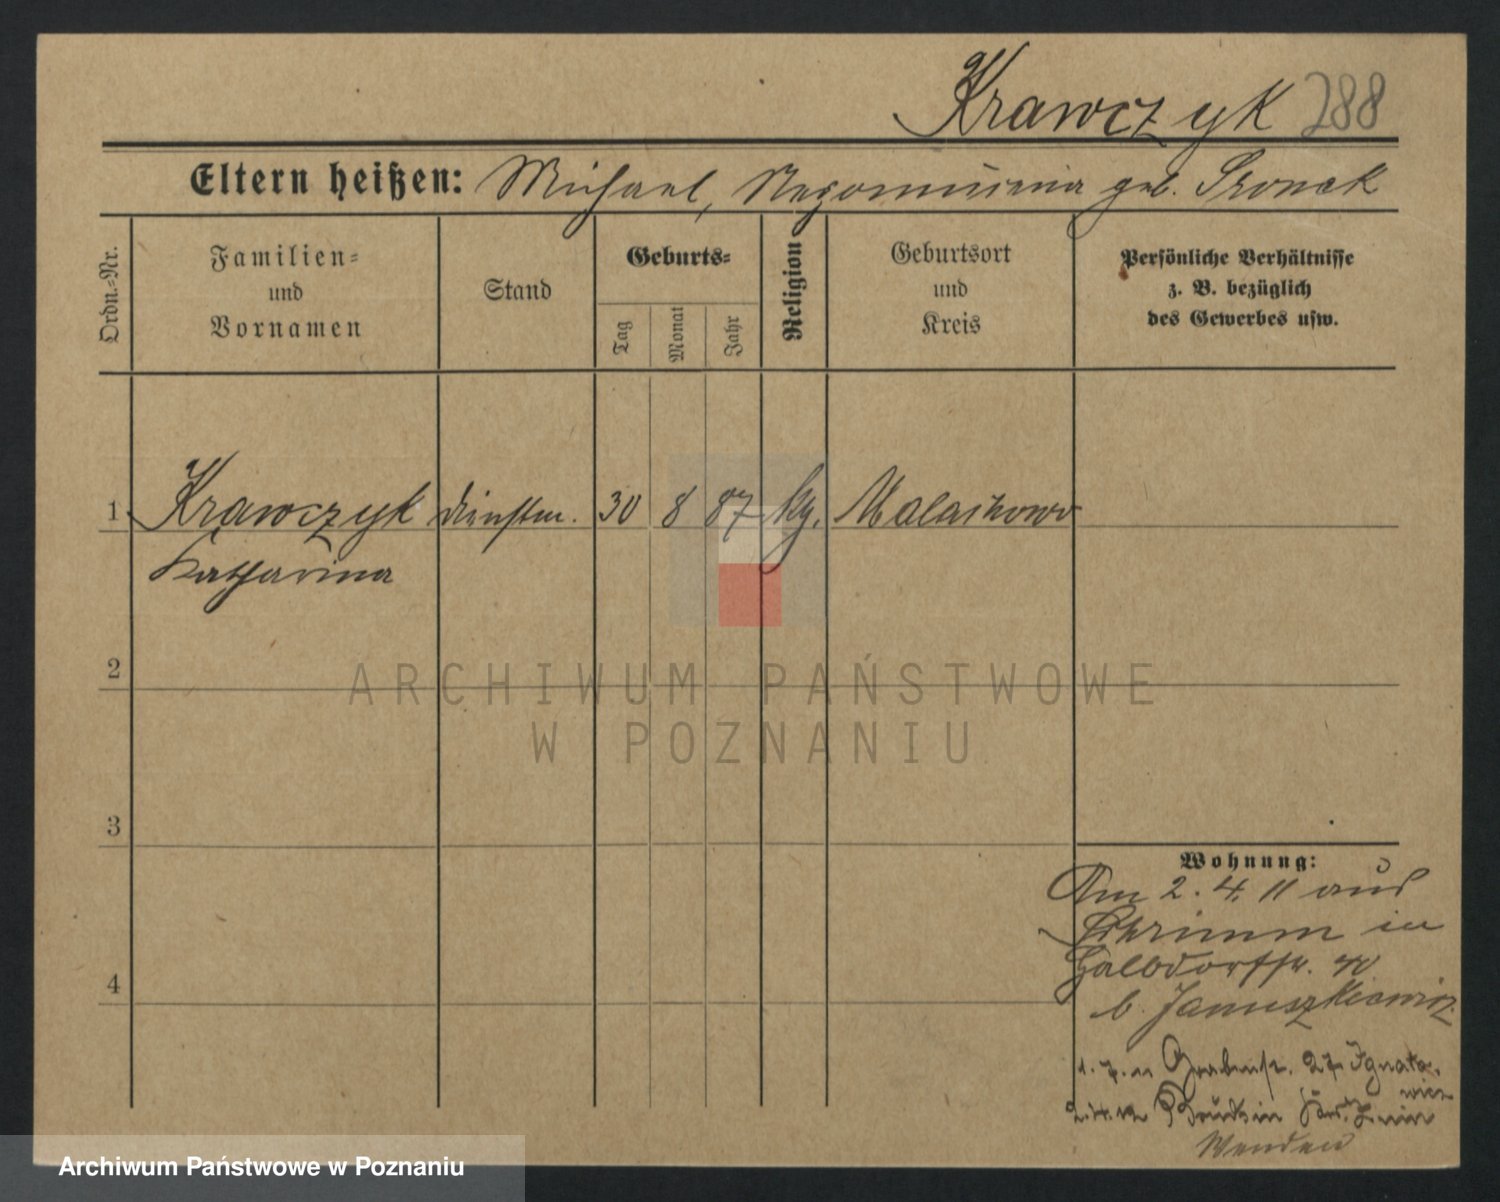 Krawczyk 288
Eltern heißen: Michael, Nepomucena geb. Skonek
Ordn.-Nr.
Familien-
und
Vornamen
Stand
Geburts-
Tag
Monat
Jahr
Religion
Geburtsort
und
Kreis
Persönliche Verhältnisse
z. B. bezüglich
des Gewerbes usw.
1 Krawczyk dienstm. 30 8 87 kg. Malachowo
Katharina
2
3
4
Wohnung:
Am 2.4.11 aus
Schrimm in
Halbdorfstr.
b. Januszkiewicz
1.7.11 Grabenstr. 27 Ignata-
wicz
2.4.12
ARCHIWUM PAŃSTWOWE
W POZNANIU
Archiwum Państwowe w Poznaniu